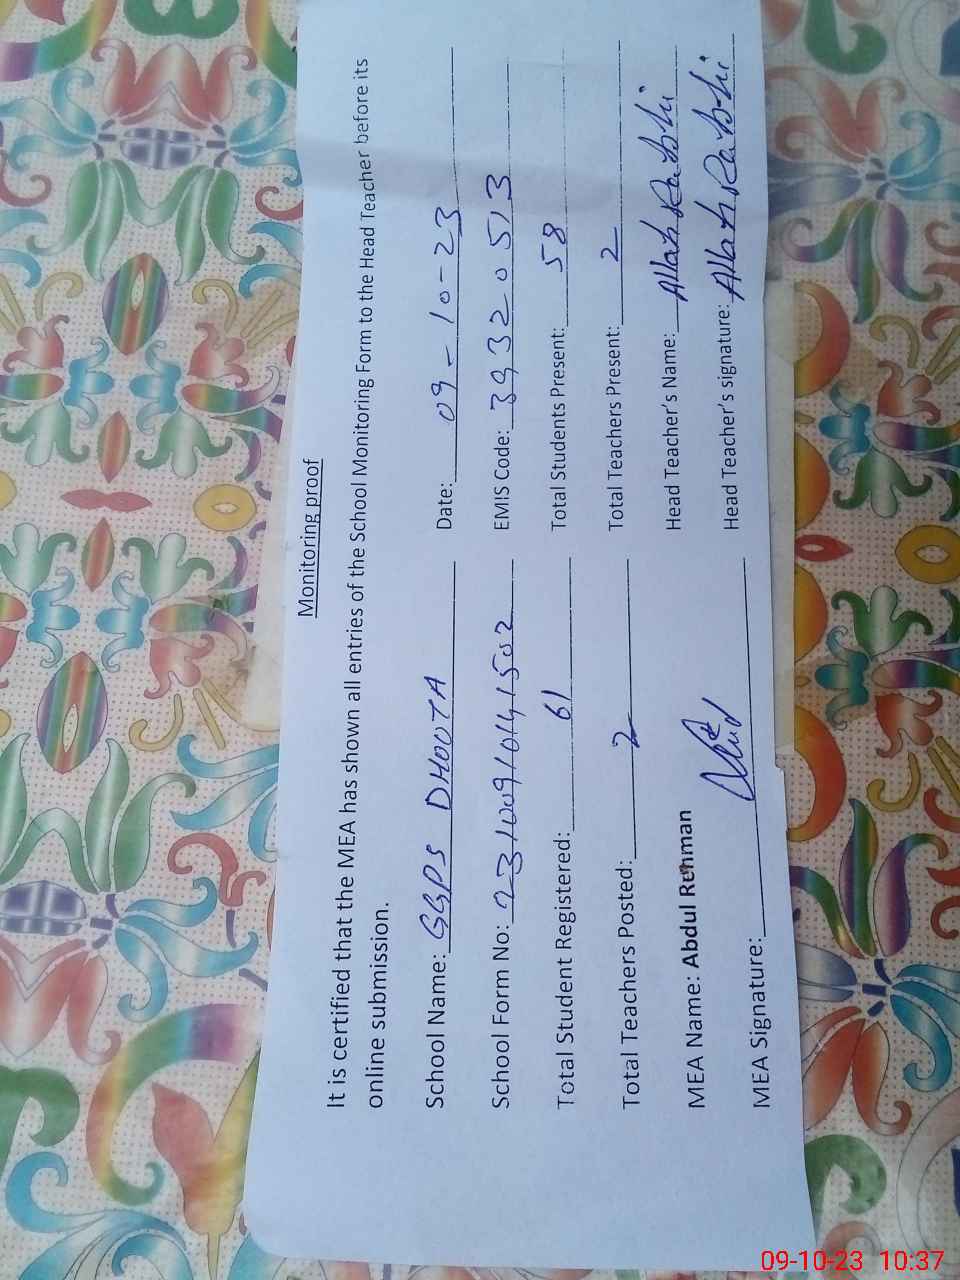 Monitoring proof
It is certified that the MEA has shown all entries of the School Monitoring Form to the Head Teacher before its
online submission.
School Name: GGPS DHOOTA Date: 09-10-23
School Form No: 23100910141502 EMIS Code: 39320513
Total Student Registered: 61 Total Students Present: 58
Total Teachers Posted: 2 Total Teachers Present: 2
MEA Name: Abdul Rehman Head Teacher's Name: Allah Rakhi
MEA Signature: Head Teacher's signature: Allah Rakhi
09-10-23 10:37